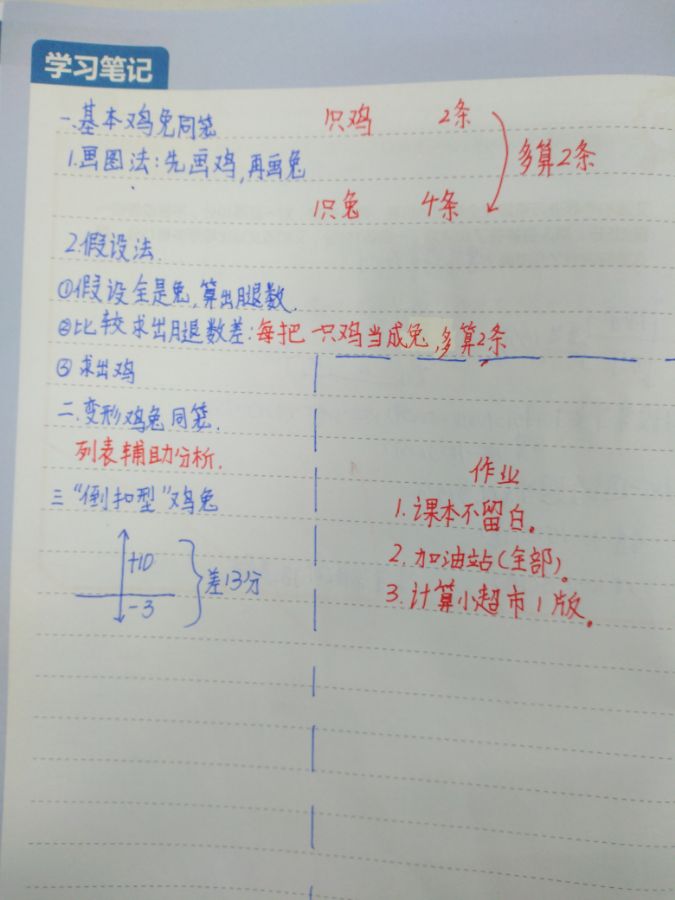 学习笔记
一、基本鸡兔同笼
1只鸡 2条
多算2条
1.画图法:先画鸡,再画兔
1只兔 4条
2.假设法.
①假设全是兔,算出腿数.
②比较求出腿数差:每把一只鸡当成兔,多算2条
③求出鸡
二.变形鸡兔同笼.
列表辅助分析.
三"倒扣型"鸡兔
+10
-3
差13分
作业
1.课本不留白。
2.加油站(全部)。
3.计算小超市1版。